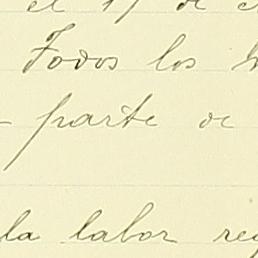 el 17 de
Todos los
parte de
la labor